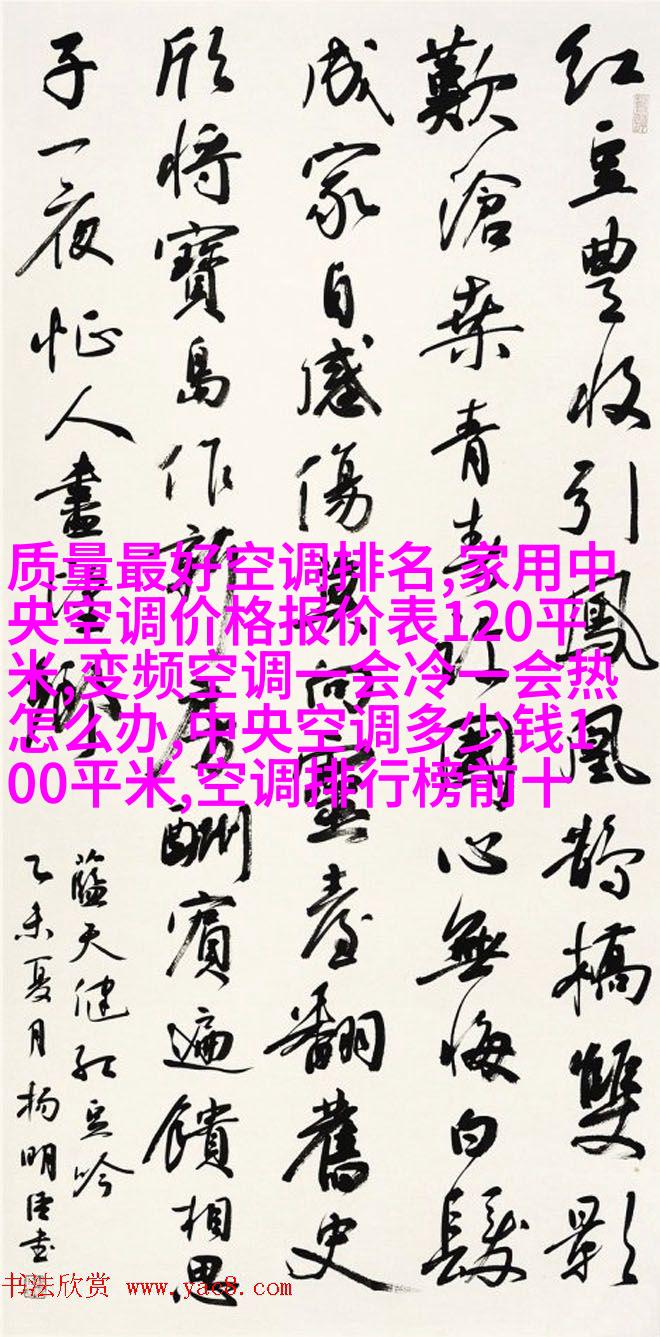 红豆豊收引鳳凰鹊橋雙影
歎滄桑青春许國心無悔白髮
成家自感傷向靈臺翻舊史
欣将寶島作新房酬賓遍饋相思
子一夜忙人盡
藴天健红豆吟
乙未夏月杨明臣书
质量最好空调排名,家用中
央空调价格报价表120平
米,变频空调一会冷一会热
怎么办,中央空调多少钱1
00平米,空调排行榜前十
书法欣赏 www.yac8.com